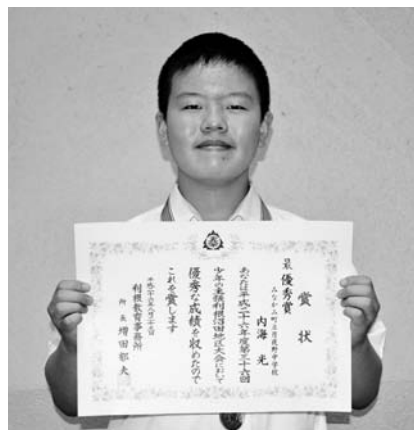 賞状
最優秀賞
みなかみ町立月夜野中学校
内海 光
あなたは平成二十六年度第三十六回
少年の主張利根沼田地区大会において
優秀な成績を収めたので
これを賞します
利根教育事務所
所長 増田郁夫